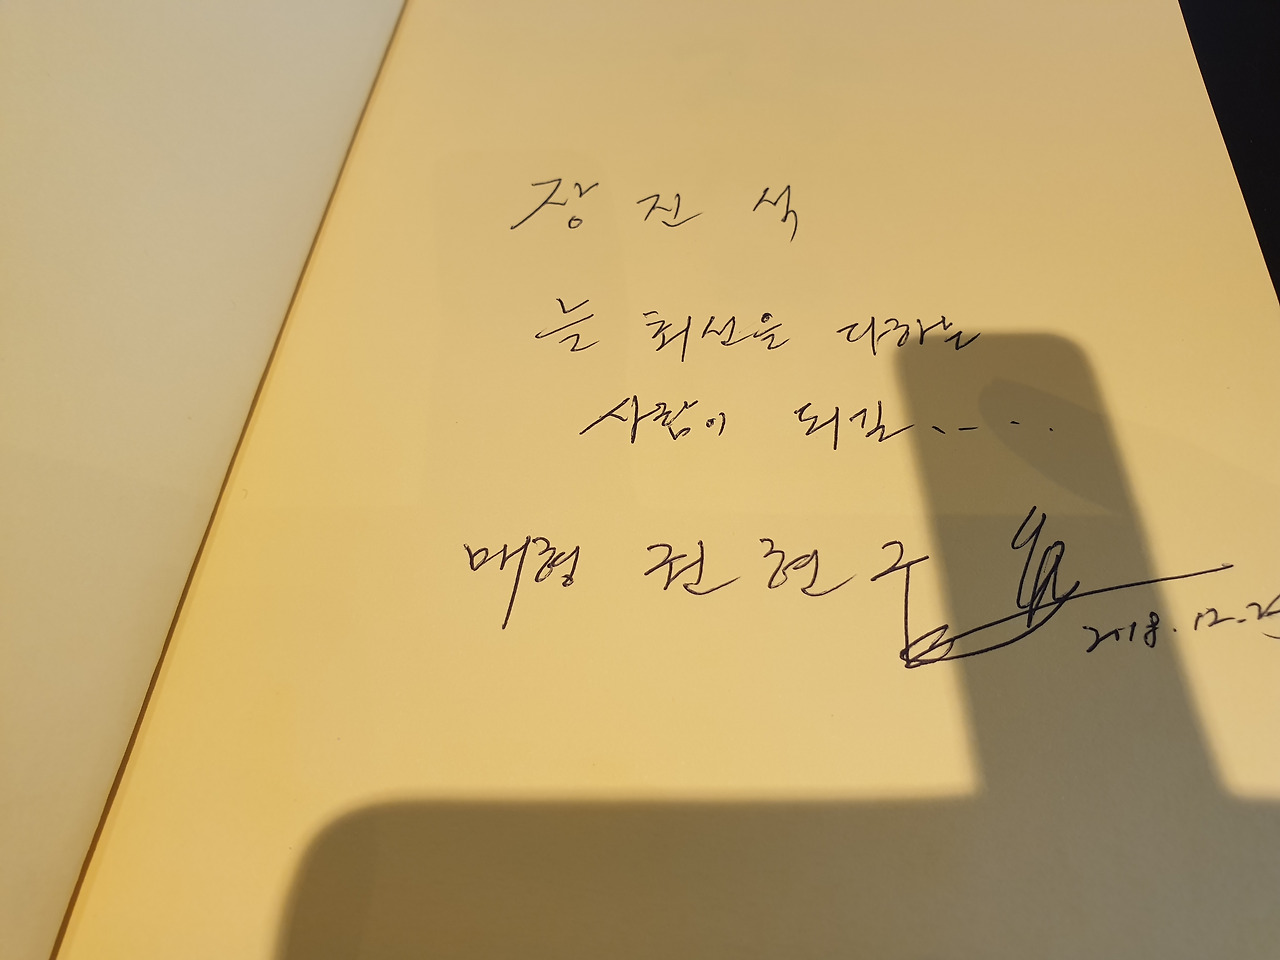 장 진 석
늘 최선을 다하는
사람이 되길.....
매형 권 현 구
2018. 12. 25